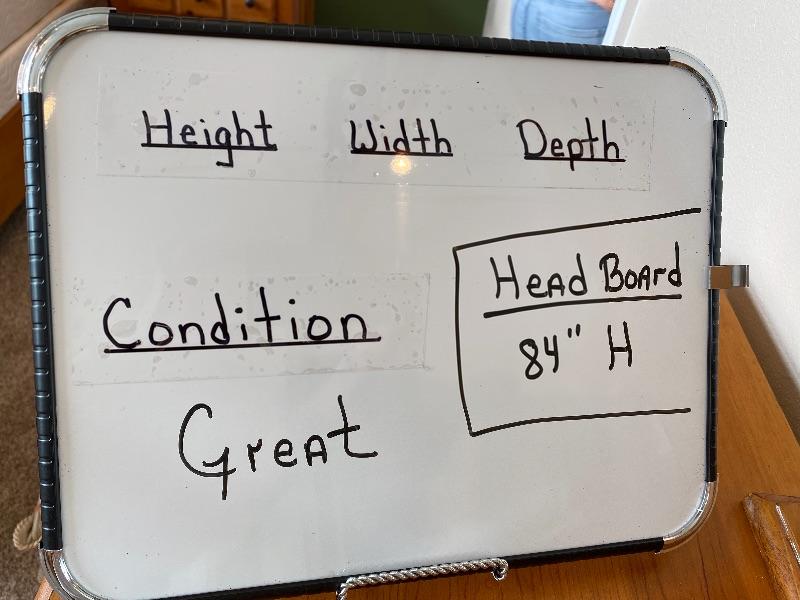 Height Width Depth
Condition
Great
Head Board
84" H